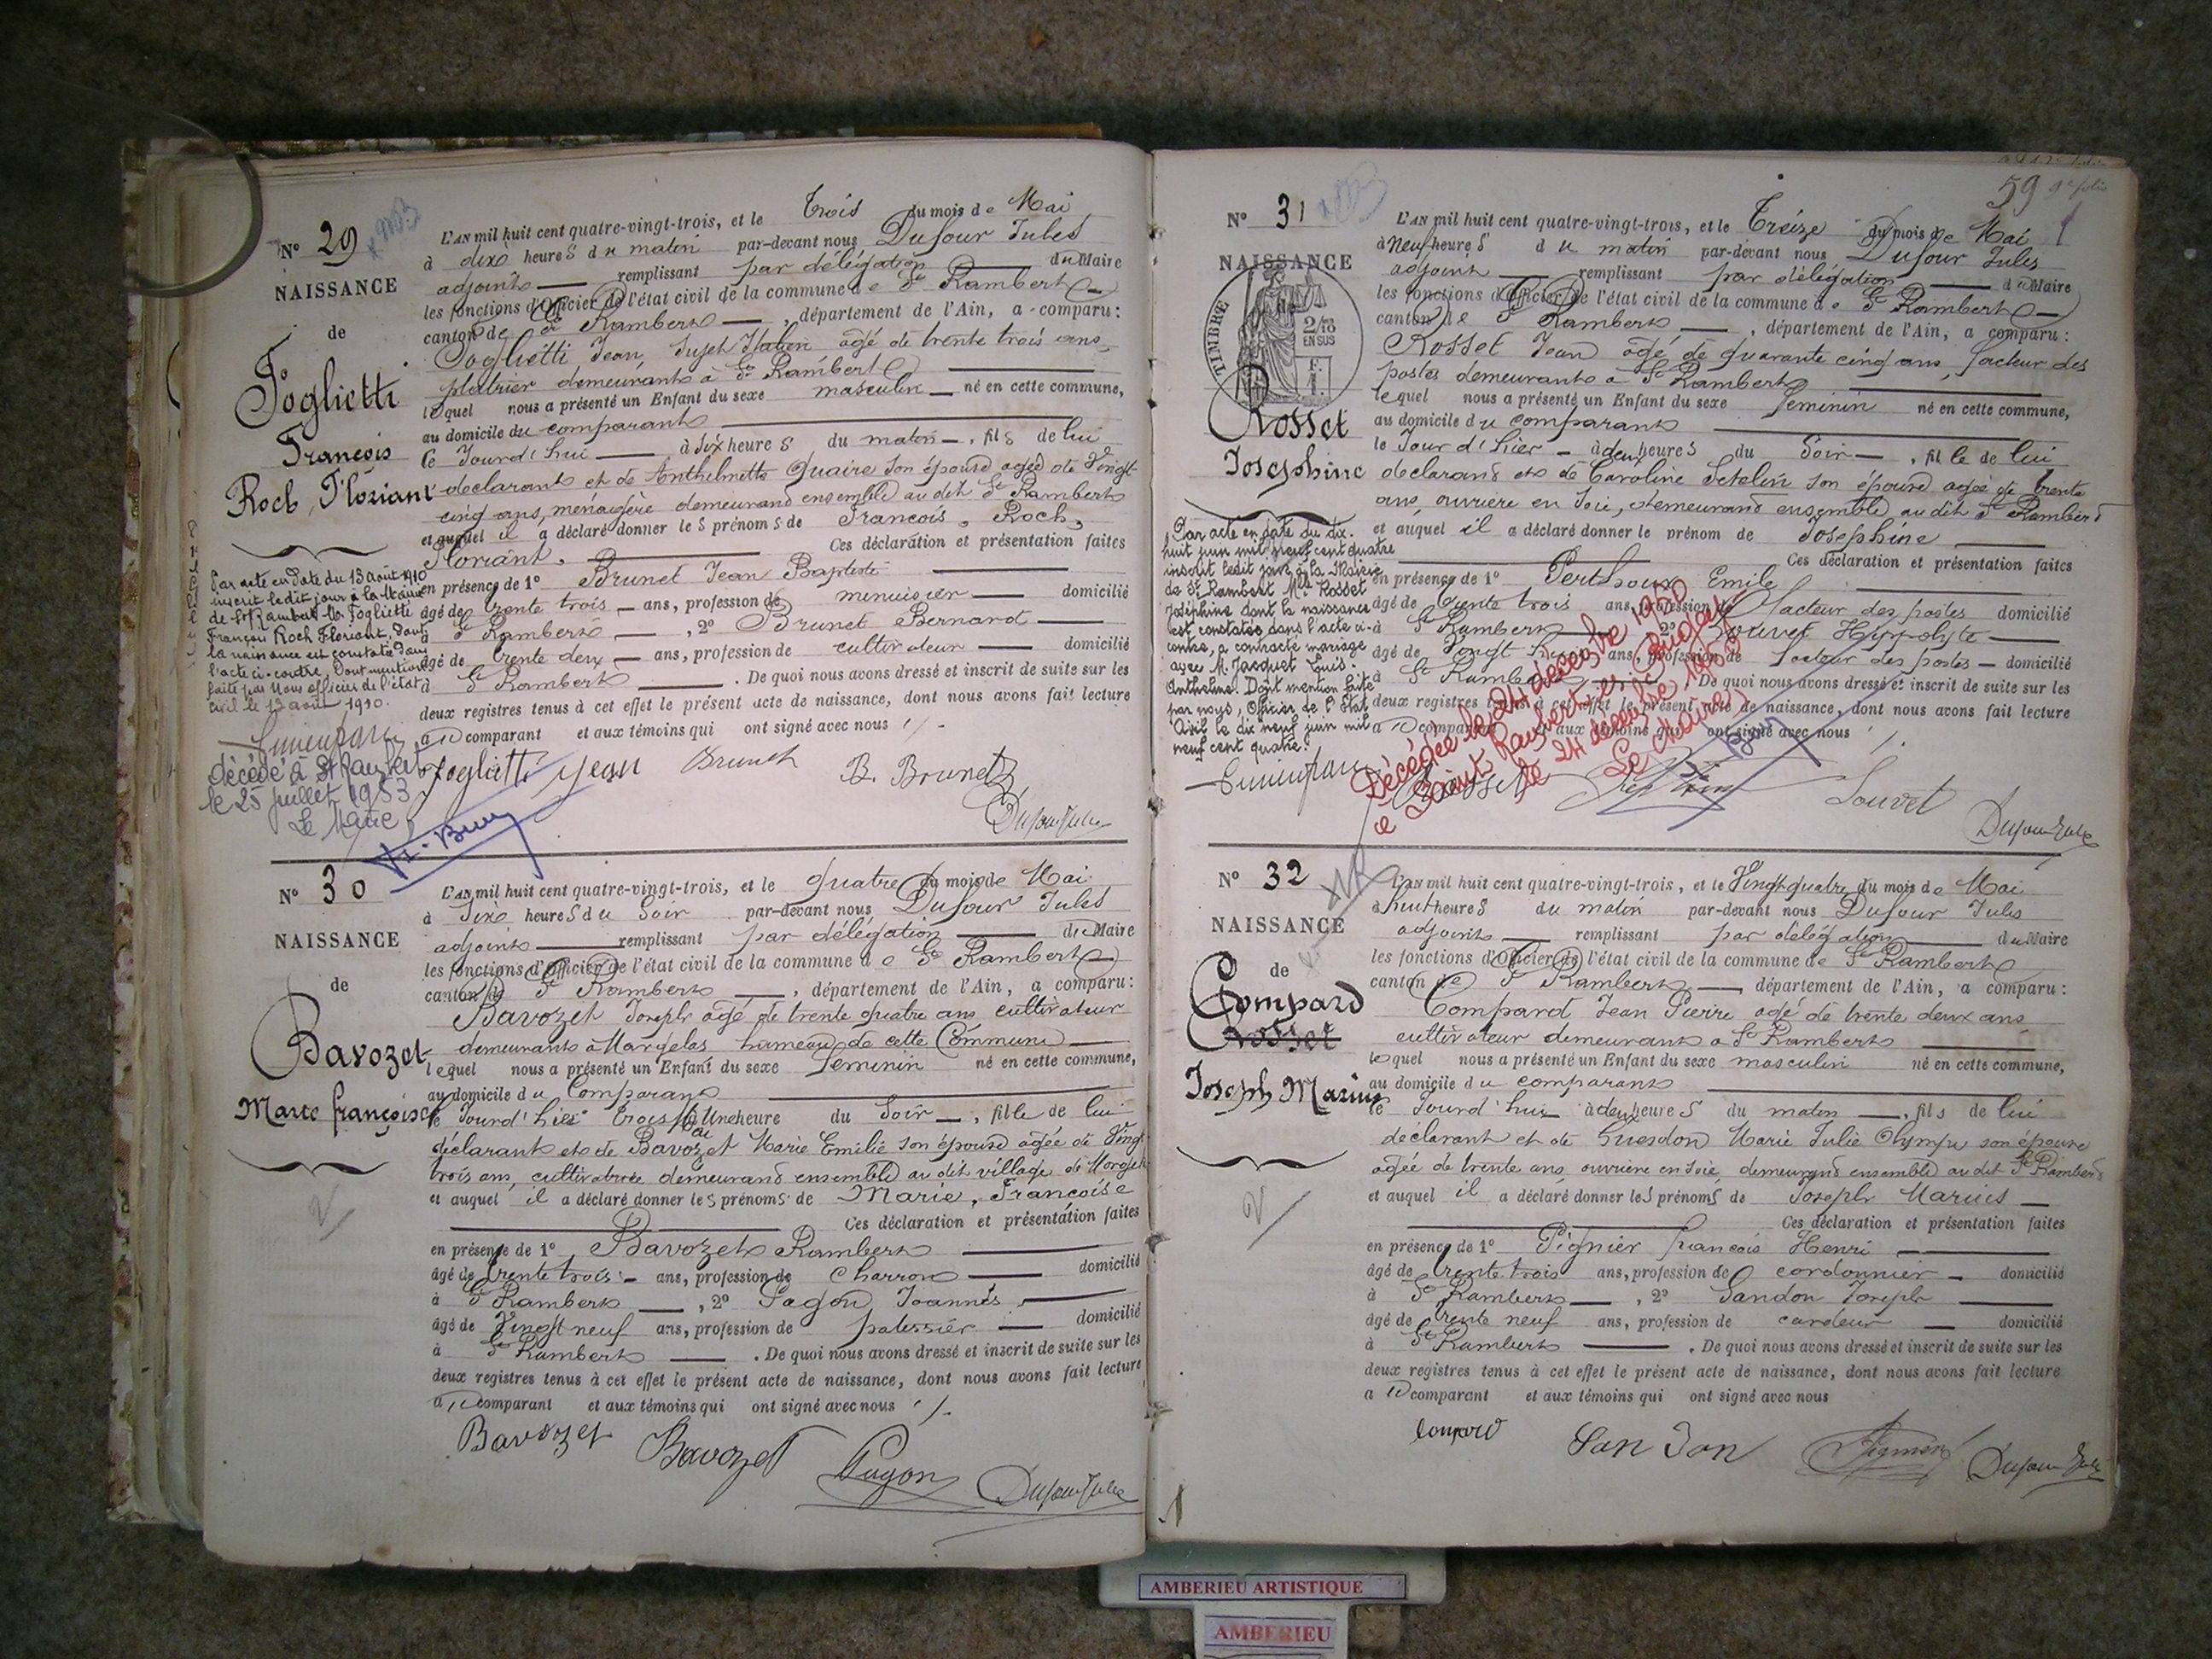 Nº 29
NAISSANCE
de
Foglietti
François
Roch, Floriant
Par acte en date du 13 août 1910
inscrit ledit jour à la Mairie
de St Rambert M. Foglietti
François Roch Floriant, dont
la naissance est constatée dans
l'acte ci-contre. Dont mention
faite par Nous officier de l'état
civil le 13 août 1910.
décédé à St Rambert
le 25 juillet 1953
Le Maire
L'AN mil huit cent quatre-vingt-trois, et le trois du mois de Mai
à dix heures du matin par-devant nous Dufour Jules
adjoint remplissant par délégation du Maire
les fonctions d'Officier de l'état civil de la commune de St Rambert
canton de St Rambert, département de l'Ain, a comparu:
Foglietti Jean, Sujet Italien âgé de trente trois ans,
platrier demeurant à St Rambert
lequel nous a présenté un Enfant du sexe masculin né en cette commune,
au domicile du comparant
le Jourd'hui à six heures du matin, fils de lui
déclarant et de Anthelmette Quaire son épouse agée de Vingt
cinq ans, ménagère demeurand ensemble au dit St Rambert
et auquel il a déclaré donner les prénoms de François, Roch,
Floriant. Ces déclaration et présentation faites
en présence de 1º Brunet Jean Baptiste
âgé de trente trois ans, profession de menuisier domicilié
à St Rambert, 2º Brunet Bernard
âgé de trente deux ans, profession de cultivateur domicilié
à St Rambert. De quoi nous avons dressé et inscrit de suite sur les
deux registres tenus à cet effet le présent acte de naissance, dont nous avons fait lecture
au comparant et aux témoins qui ont signé avec nous
Foglietti Jean Brunet B. Brunet
Dufour Jules
Nº 30
NAISSANCE
de
Bavozet
Marie françoise
L'AN mil huit cent quatre-vingt-trois, et le quatre du mois de Mai
à Six heures du Soir par-devant nous Dufour Jules
adjoint remplissant par délégation du Maire
les fonctions d'Officier de l'état civil de la commune de St Rambert
canton de St Rambert, département de l'Ain, a comparu:
Bavozet Joseph âgé de trente quatre ans cultivateur
demeurant à Morgelas hameau de cette Commune
lequel nous a présenté un Enfant du sexe Feminin né en cette commune,
au domicile du Comparant
le Jourd'hier trois Mai à Une heure du Soir, fille de lui
déclarant et de Bavozet Marie Emilie son épouse agée de Vingt
trois ans, cultivatrice demeurand ensemble au dit village de Morgelas
et auquel il a déclaré donner les prénoms de Marie, Françoise
Ces déclaration et présentation faites
en présence de 1º Bavozet Rambert
âgé de trente trois ans, profession de charron domicilié
à St Rambert, 2º Pagon Joannès
âgé de Vingt neuf ans, profession de patissier domicilié
à St Rambert. De quoi nous avons dressé et inscrit de suite sur les
deux registres tenus à cet effet le présent acte de naissance, dont nous avons fait lecture
au comparant et aux témoins qui ont signé avec nous
Bavozet Bavozet Pagon Dufour Jules
59
Nº 31
NAISSANCE
TIMBRE
2/10
EN SUS
Rosset
Josephine
Par acte en date du dix-
huit juin mil neuf cent quatre
inscrit ledit jour à la Mairie
de St Rambert Mlle Rosset
Joséphine dont la naissance
est constatée dans l'acte ci-
contre, a contracté mariage
avec M. Jacquet Louis-
Anthelme. Dont mention faite
par nous, Officier de l'Etat
Civil le dix neuf juin mil
neuf cent quatre.
L'AN mil huit cent quatre-vingt-trois, et le Treize du mois de Mai
à Neuf heures du matin par-devant nous Dufour Jules
adjoint remplissant par délégation du Maire
les fonctions d'Officier de l'état civil de la commune de St Rambert
canton de St Rambert, département de l'Ain, a comparu:
Rosset Jean âgé de quarante cinq ans, facteur des
postes demeurant à St Rambert
lequel nous a présenté un Enfant du sexe Feminin né en cette commune,
au domicile du comparant
le Jour d'hier à deux heures du Soir, fille de lui
déclarand et de Caroline Setelin son épouse agée de trente
ans, ouvrière en Soie, demeurand ensemble au dit St Rambert
et auquel il a déclaré donner le prénom de Joséphine
Ces déclaration et présentation faites
en présence de 1º Perthoux Emile
âgé de trente trois ans, profession de facteur des postes domicilié
à St Rambert 2º Souvet Hyppolyte
âgé de Vingt ans, profession de facteur des postes domicilié
à St Rambert. De quoi nous avons dressé et inscrit de suite sur les
deux registres tenus à cet effet le présent acte de naissance, dont nous avons fait lecture
au comparant et aux témoins qui ont signé avec nous
Décédée le 24 décembre 1950
à Saint Rambert en Bugey
le 24 décembre 1950
Le Maire,
Rosset Souvet Dufour Jules
Nº 32
NAISSANCE
de
Compard
Rosset
Joseph Marius
L'AN mil huit cent quatre-vingt-trois, et le Vingt quatre du mois de Mai
à huit heures du matin par-devant nous Dufour Jules
adjoint remplissant par délégation du Maire
les fonctions d'Officier de l'état civil de la commune de St Rambert
canton de St Rambert, département de l'Ain, a comparu:
Compard Jean Pierre âgé de trente deux ans
cultivateur demeurant à St Rambert
lequel nous a présenté un Enfant du sexe masculin né en cette commune,
au domicile du comparant
le Jourd'hui à deux heures du matin, fils de lui
déclarant et de Guesdon Marie Julie Olympe son épouse
agée de trente ans ouvrière en soie, demeurand ensemble au dit St Rambert
et auquel il a déclaré donner les prénoms de Joseph Marius
Ces déclaration et présentation faites
en présence de 1º Pignier françois Henri
âgé de trente trois ans, profession de cordonnier domicilié
à St Rambert, 2º Sandon Joseph
âgé de trente neuf ans, profession de cardeur domicilié
à St Rambert. De quoi nous avons dressé et inscrit de suite sur les
deux registres tenus à cet effet le présent acte de naissance, dont nous avons fait lecture
au comparant et aux témoins qui ont signé avec nous
Compard San Don Pignier Dufour Jules
AMBERIEU ARTISTIQUE
AMBERIEU